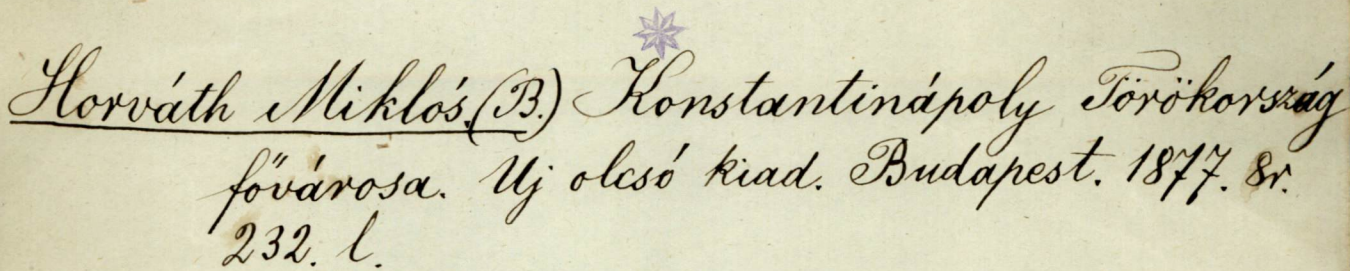 Horváth Miklós.(B.) Konstantinápoly Törökország
fővárosa. Uj olcsó kiad. Budapest. 1877. 8r.
232. l.